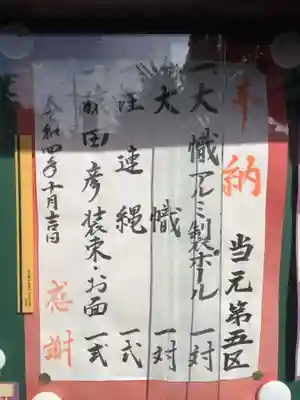 奉納
当元第五区
一大幟アルミ製ポール 一対
一大幟 一対
一注連縄 一式
一猿田彦装束・お面 一式
令和四年十月吉日
感謝